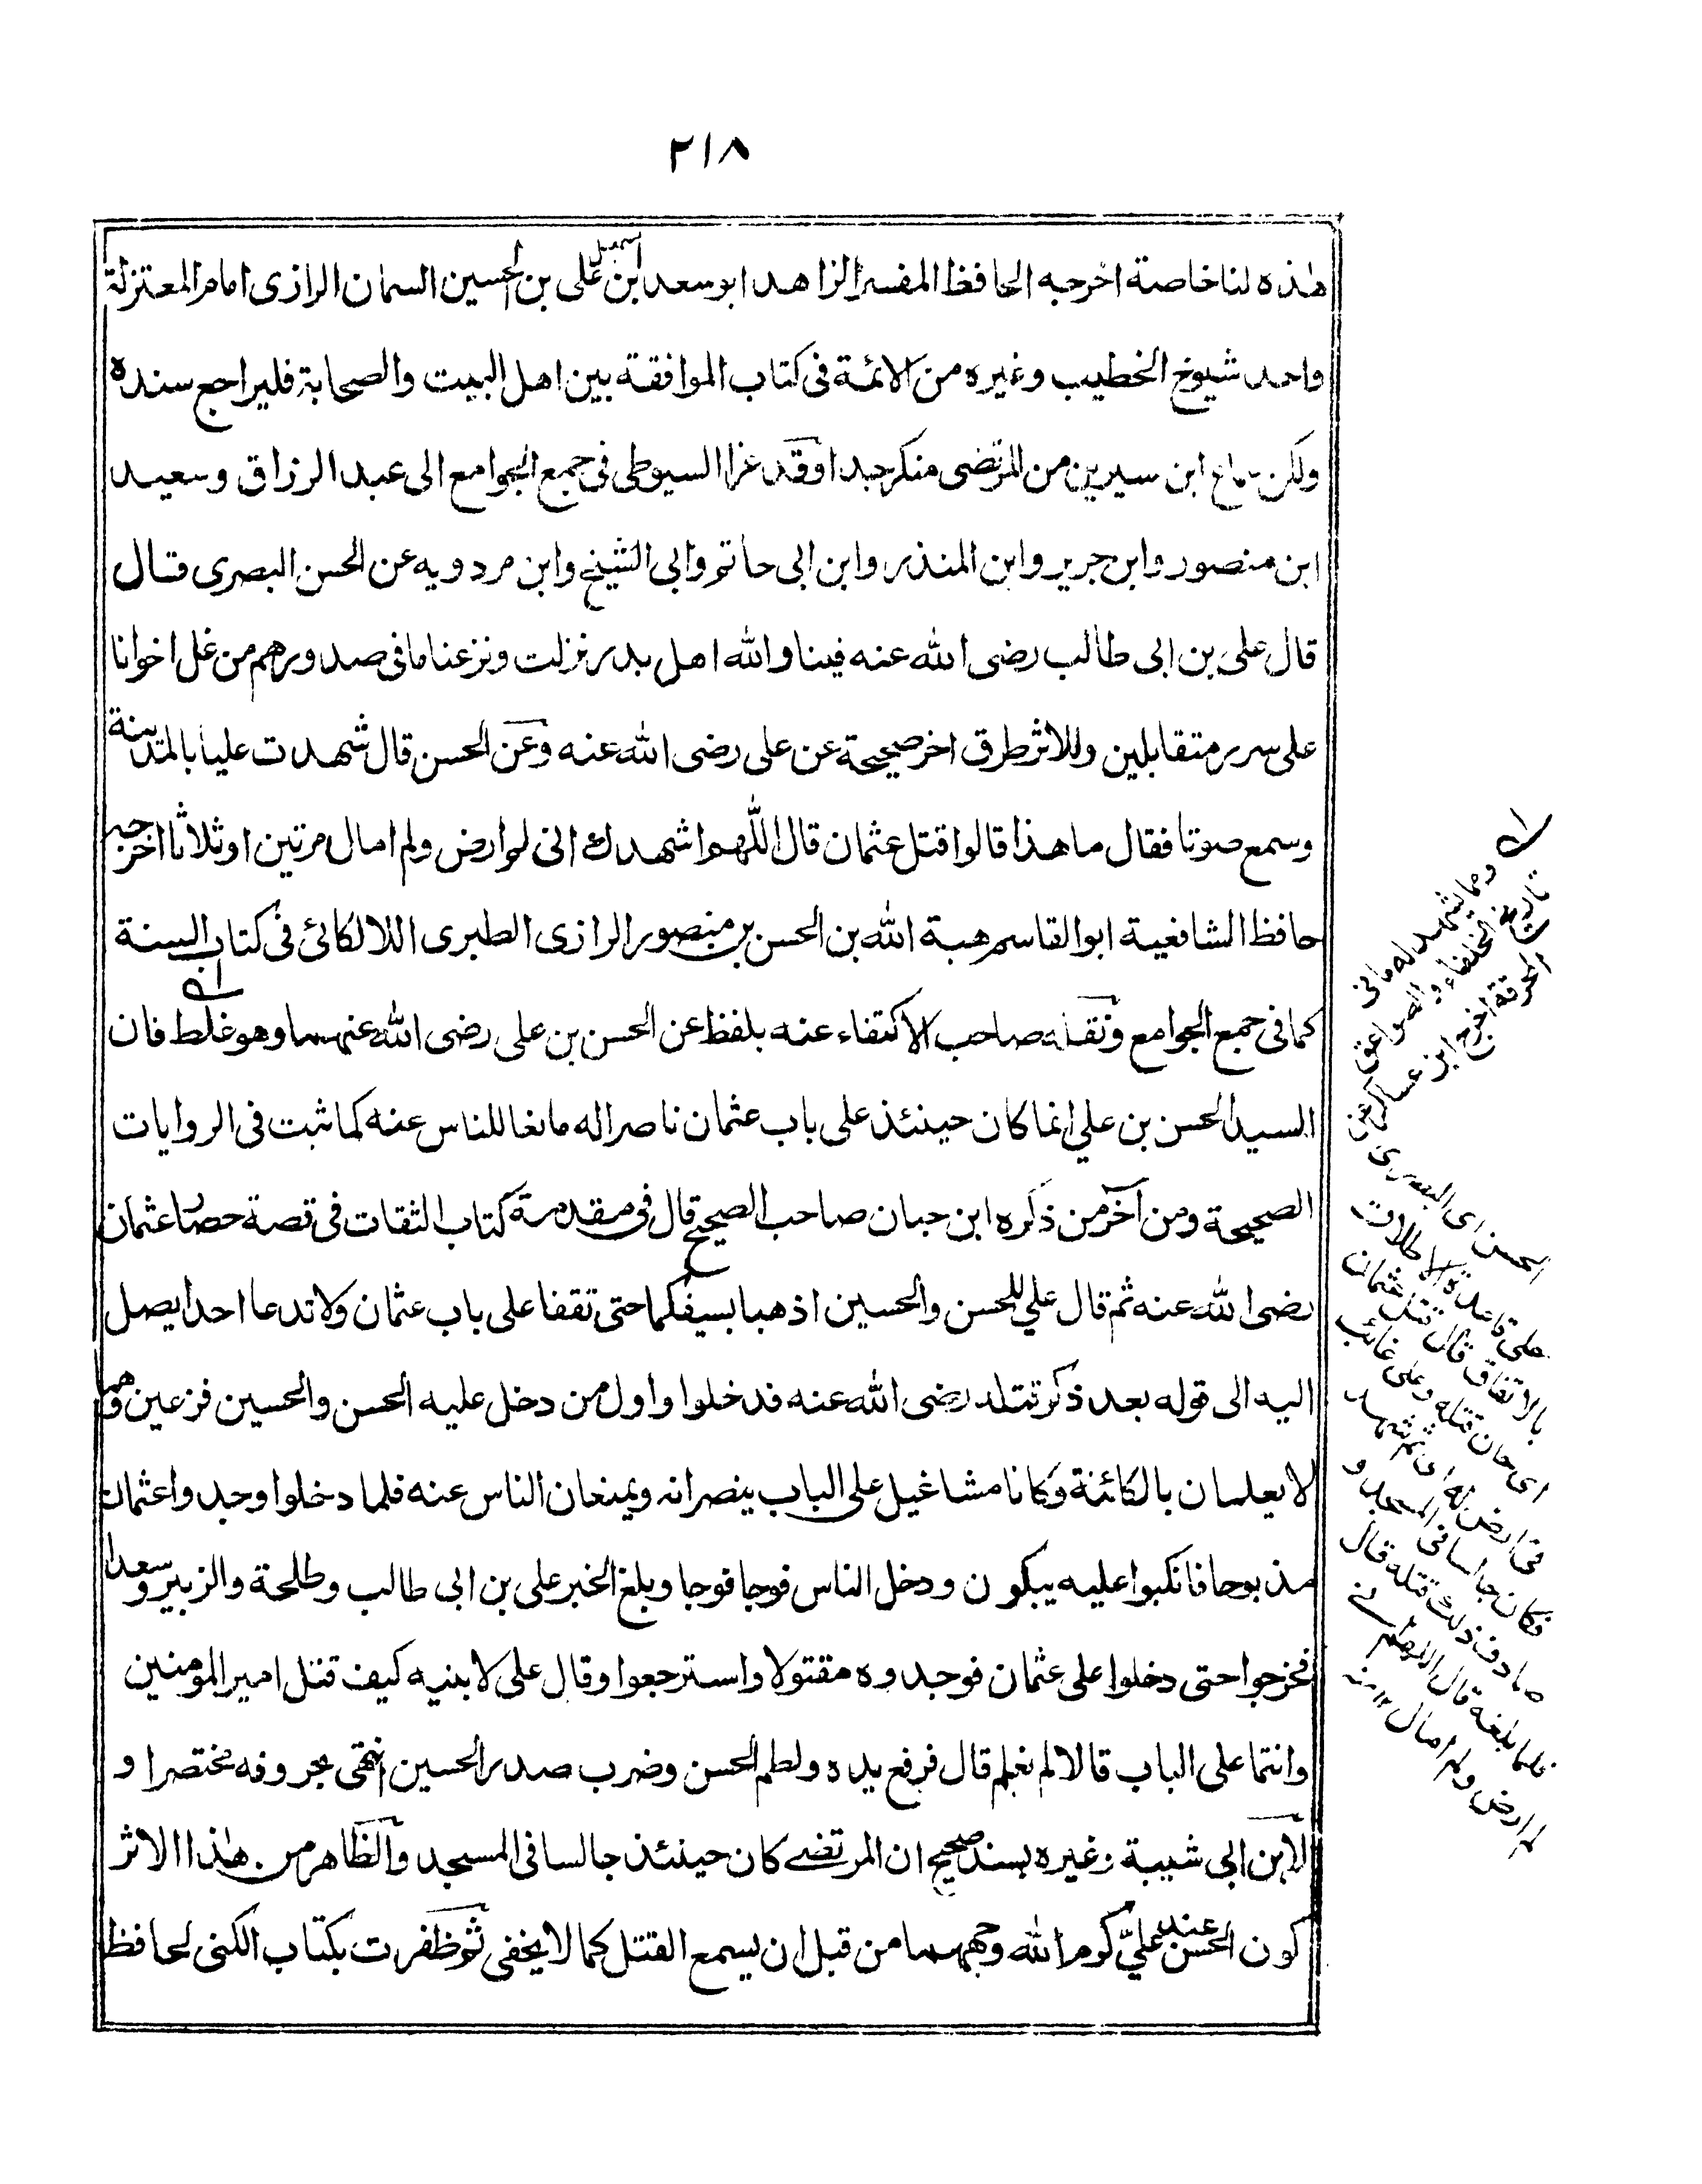 ٢١٨
هذه لنا خاصة اخرجه الحافظ المفسر الزاهد ابو سعد اسمعيل ابن على بن الحسين السمان الرازى امام المعتزلة
واحد شيوخ الخطيب وغيره من الائمة فى كتاب الموافقة بين اهل البيت والصحابة فليراجع سنده
ولكن سماع ابن سيرين من المرتضى منكر جدا وقد عزا السيوطى فى جمع الجوامع الى عبد الرزاق وسعيد
ابن منصور وابن جرير وابن المنذر وابن ابى حاتم وابى الشيخ وابن مردويه عن الحسن البصرى قال
قال على بن ابى طالب رضى الله عنه فينا والله اهل بدر نزلت ونزعنا ما فى صدورهم من غل اخوانا
على سرر متقابلين وللاثر طرق اخر صحيحة عن على رضى الله عنه وعن الحسن قال شهدت عليا بالمدينة
وسمع صوتا فقال ما هذا قالوا قتل عثمان قال اللهم اشهدك انى لم ارض ولم امال مرتين او ثلاثا اخرجه
حافظ الشافعية ابو القاسم هبة الله بن الحسن بن منصور الرازى الطبرى اللالكائى فى كتاب السنة
كما فى جمع الجوامع ونقله صاحب الاكتفاء عنه بلفظ عن الحسن بن على رضى الله عنهما وهو غلط فان
السيد الحسن بن على انما كان حينئذ على باب عثمان ناصرا له مانعا للناس عنه كما ثبت فى الروايات
الصحيحة ومن آخر من ذكره ابن حبان صاحب الصحيح قال فى مقدمة كتاب الثقات فى قصة حصار عثمان
رضى الله عنه ثم قال على للحسن والحسين اذهبا بسيفكما حتى تقفا على باب عثمان ولا تدعا احدا يصل
اليه الى قوله بعد ذكر قتله رضى الله عنه فدخلوا واول من دخل عليه الحسن والحسين فزعين وهما
لا يعلمان بالكائنة وكانا مشاغيل على الباب ينصرانه ويمنعان الناس عنه فلما دخلوا وجدوا عثمان
مذبوحا فانكبوا عليه يبكون ودخل الناس فوجا فوجا وبلغ الخبر على بن ابى طالب وطلحة والزبير وسعدا
فخرجوا حتى دخلوا على عثمان فوجدوه مقتولا واسترجعوا وقال على لابنيه كيف قتل امير المومنين
وانتما على الباب قالا لم نعلم قال فرفع يده ولطم الحسن وضرب صدر الحسين انتهى بحروفه مختصرا و
لابن ابى شيبة وغيره بسند صحيح ان المرتضى كان حينئذ جالسا فى المسجد والظاهر من هذا الاثر
كون الحسن عند على كرم الله وجههما من قبل ان يسمع القتل كما لا يخفى ثم ظفرت بكتاب الكنى لحافظ
ومما يشهد له ما فى
تاريخ الخلفاء والصواعق
المحرقة اخرج ابن عساكر عن
الحسن اى البصرى
على قاعدة الاطلاق
بالاتفاق قال قتل عثمان
اى حان قتله وعلى غائب
فى ارض له اى ثم شهد
فكان جالسا فى المسجد و
صادف ذلك قتله قال
فلما بلغه قال اللهم انى
لم ارض ولم امال ١٢ منه